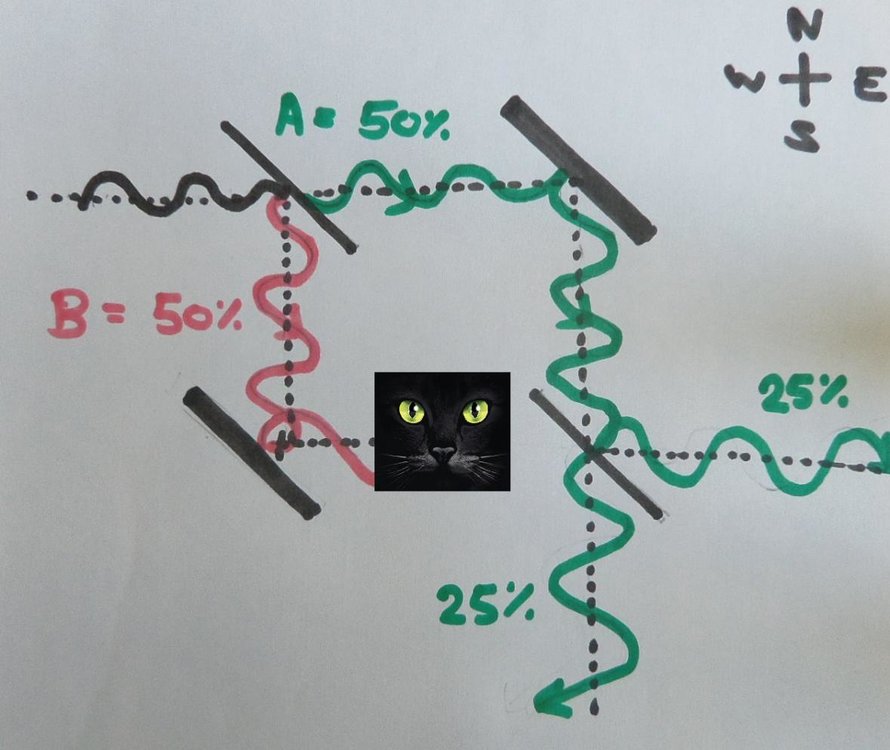 N
W E
S
A = 50%
B = 50%
25%
25%